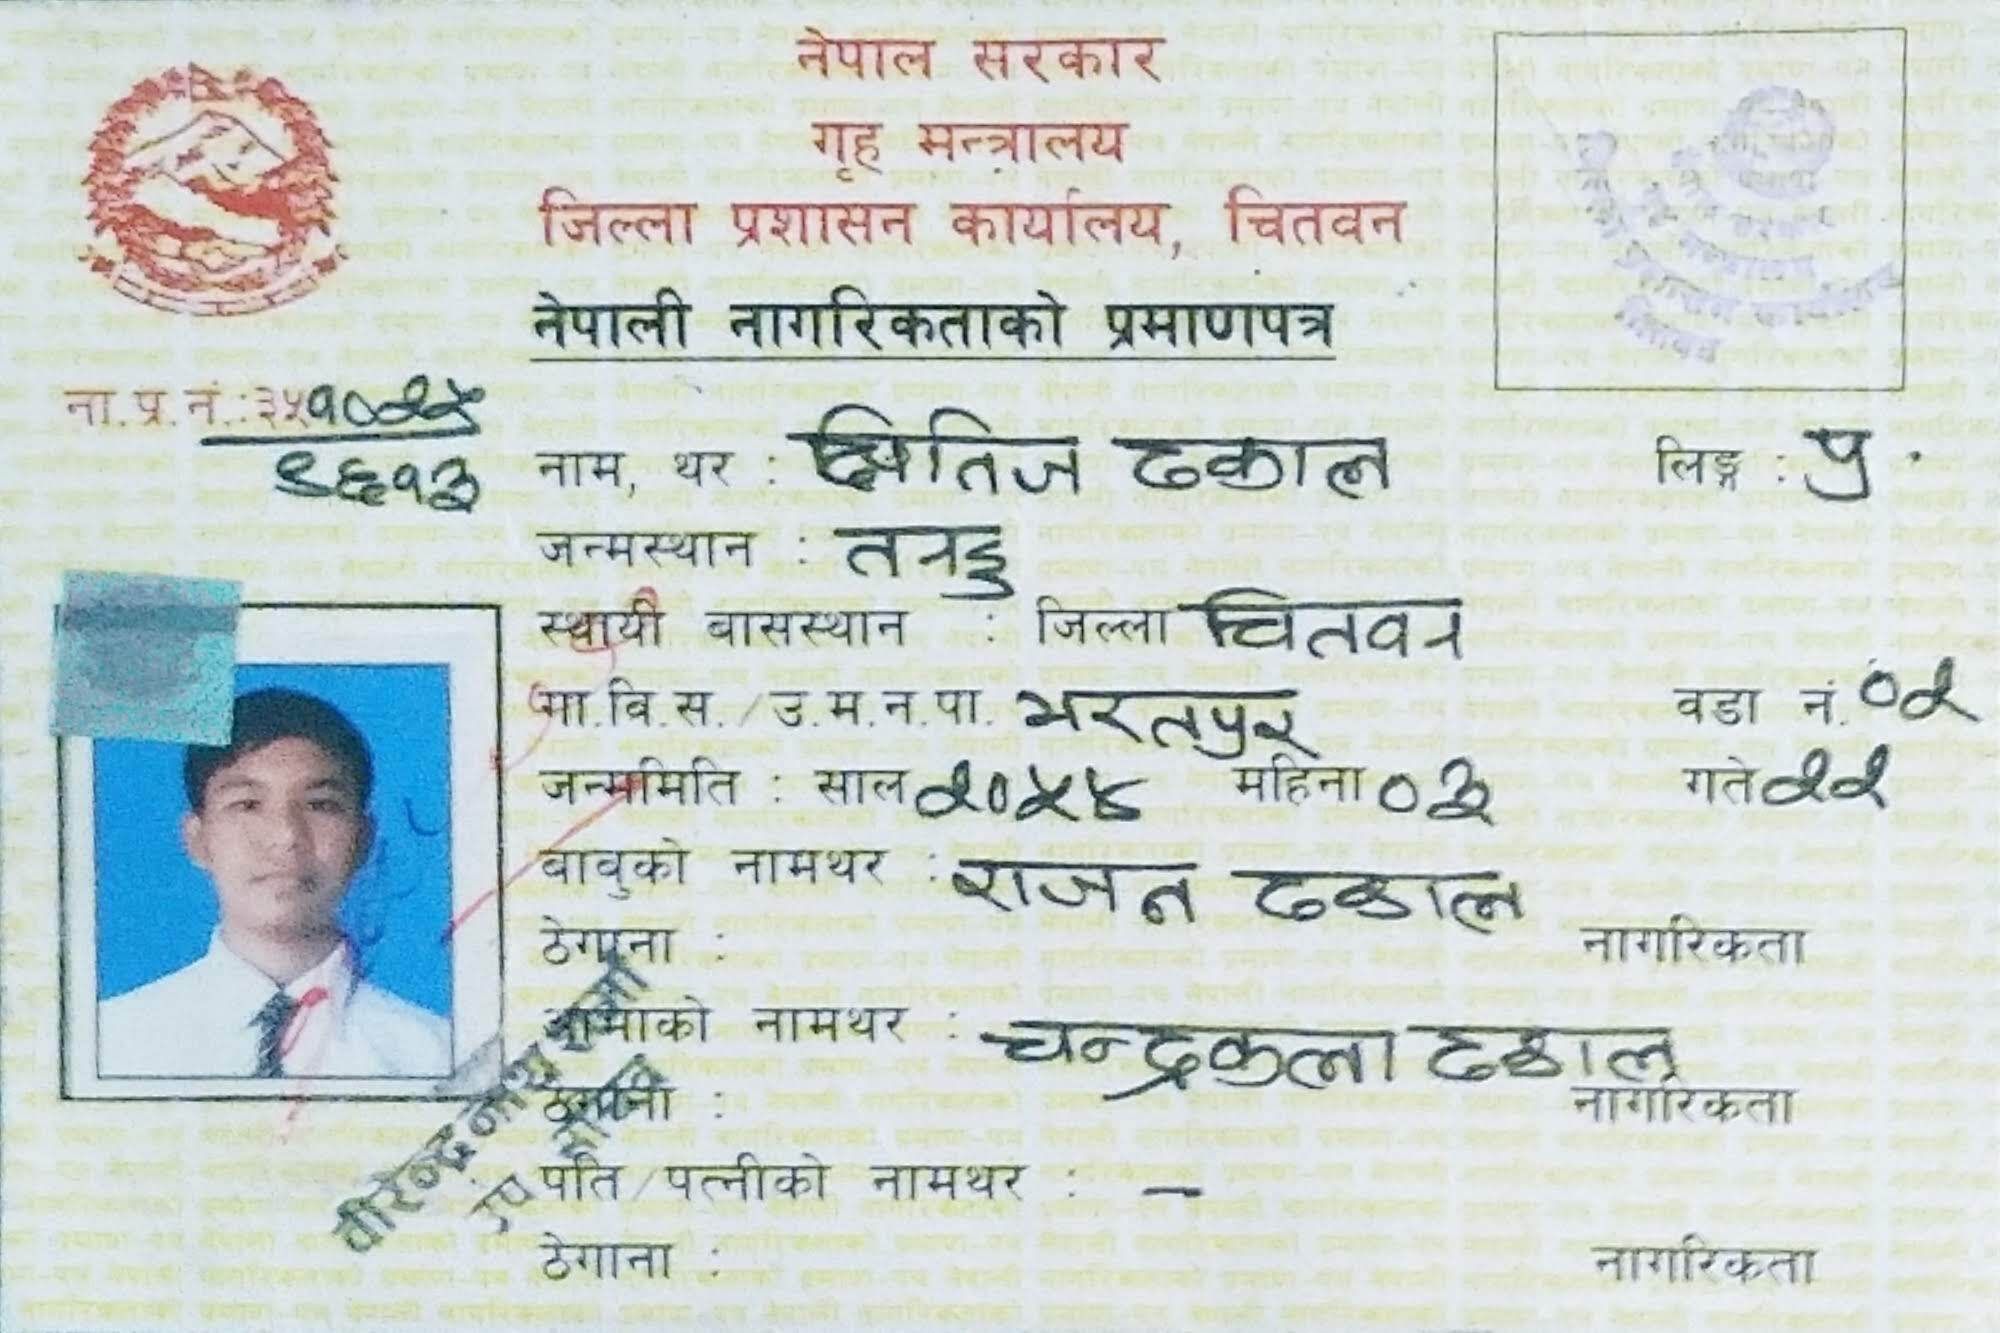 नेपाल सरकार
गृह मन्त्रालय
जिल्ला प्रशासन कार्यालय, चितवन
नेपाली नागरिकताको प्रमाणपत्र
ना.प्र.नं.:३५१०२५
९६१३
नाम, थर : क्षितिज ढकाल लिङ्ग : पु.
जन्मस्थान : तनहु
स्थायी बासस्थान : जिल्ला चितवन
गा.वि.स./उ.म.न.पा. भरतपुर वडा नं. ०२
जन्ममिति : साल २०५४ महिना ०३ गते २२
बाबुको नामथर : राजन ढकाल
ठेगाना : नागरिकता
आमाको नामथर : चन्द्रकला ढकाल
ठेगाना : नागरिकता
पति/पत्नीको नामथर : –
ठेगाना : नागरिकता